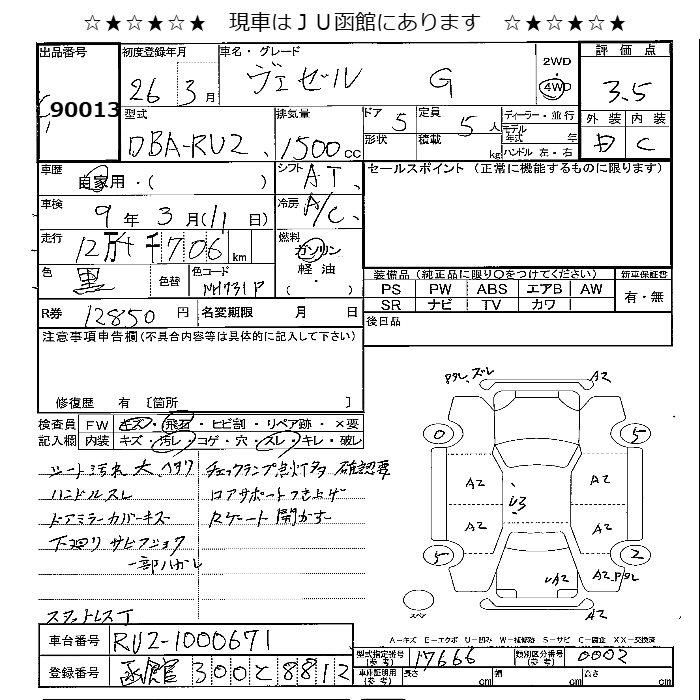 ☆★☆★☆★ 現車はＪＵ函館にあります ☆★☆★☆★
出品番号 90013
初度登録年月 26年 3月
車名・グレード ヴェゼル G
2WD 4WD
評価点 3.5
型式 DBA-RU2
排気量 1500cc
ドア 5 定員 5人
形状 積載 kg
ディーラー・並行
モデル年式 年
ハンドル 左・右
外装 内装 C
車歴 自家用・( )
シフト AT
セールスポイント (正常に機能するものに限ります)
車検 9年 3月(11日)
冷房 A/C
走行 12万4千706km
燃料 ガソリン 軽油 ( )
色 黒 色替 色コード NH731P
装備品 (純正品に限り○をつけてください) 新車保証書
PS PW ABS エアB AW 有・無
SR ナビ TV カワ
R券 12850円 名変期限 月 日
後日品
注意事項申告欄 (不具合内容等は具体的に記入して下さい)
修復歴 有 〔箇所 〕
検査員記入欄 FW キズ・飛石・ヒビ割・リペア跡・×要
内装 キズ・汚レ・コゲ・穴・スレ・キレ・破レ
シート汚れ大 ヘタリ
ハンドルスレ
ドアミラーカバーキズ
下廻り サビフショク
一部ハガレ
スタットレスT
チェックランプ点灯多 確認要
コアサポートつき上げ
Rゲート開かず
A2
0 5
A2 A2
A2 A2
5 2
A2
A2
A-キズ E-エクボ U-凹み W-補修跡 S-サビ C-腐蝕 XX-交換済
車台番号 RU2-1000671
型式指定番号 (参考) 17666 類別区分番号 (参考) 0002
登録番号 函館 300 と 8812
車庫証明用 (参考) 長さ cm 幅 cm 高さ cm